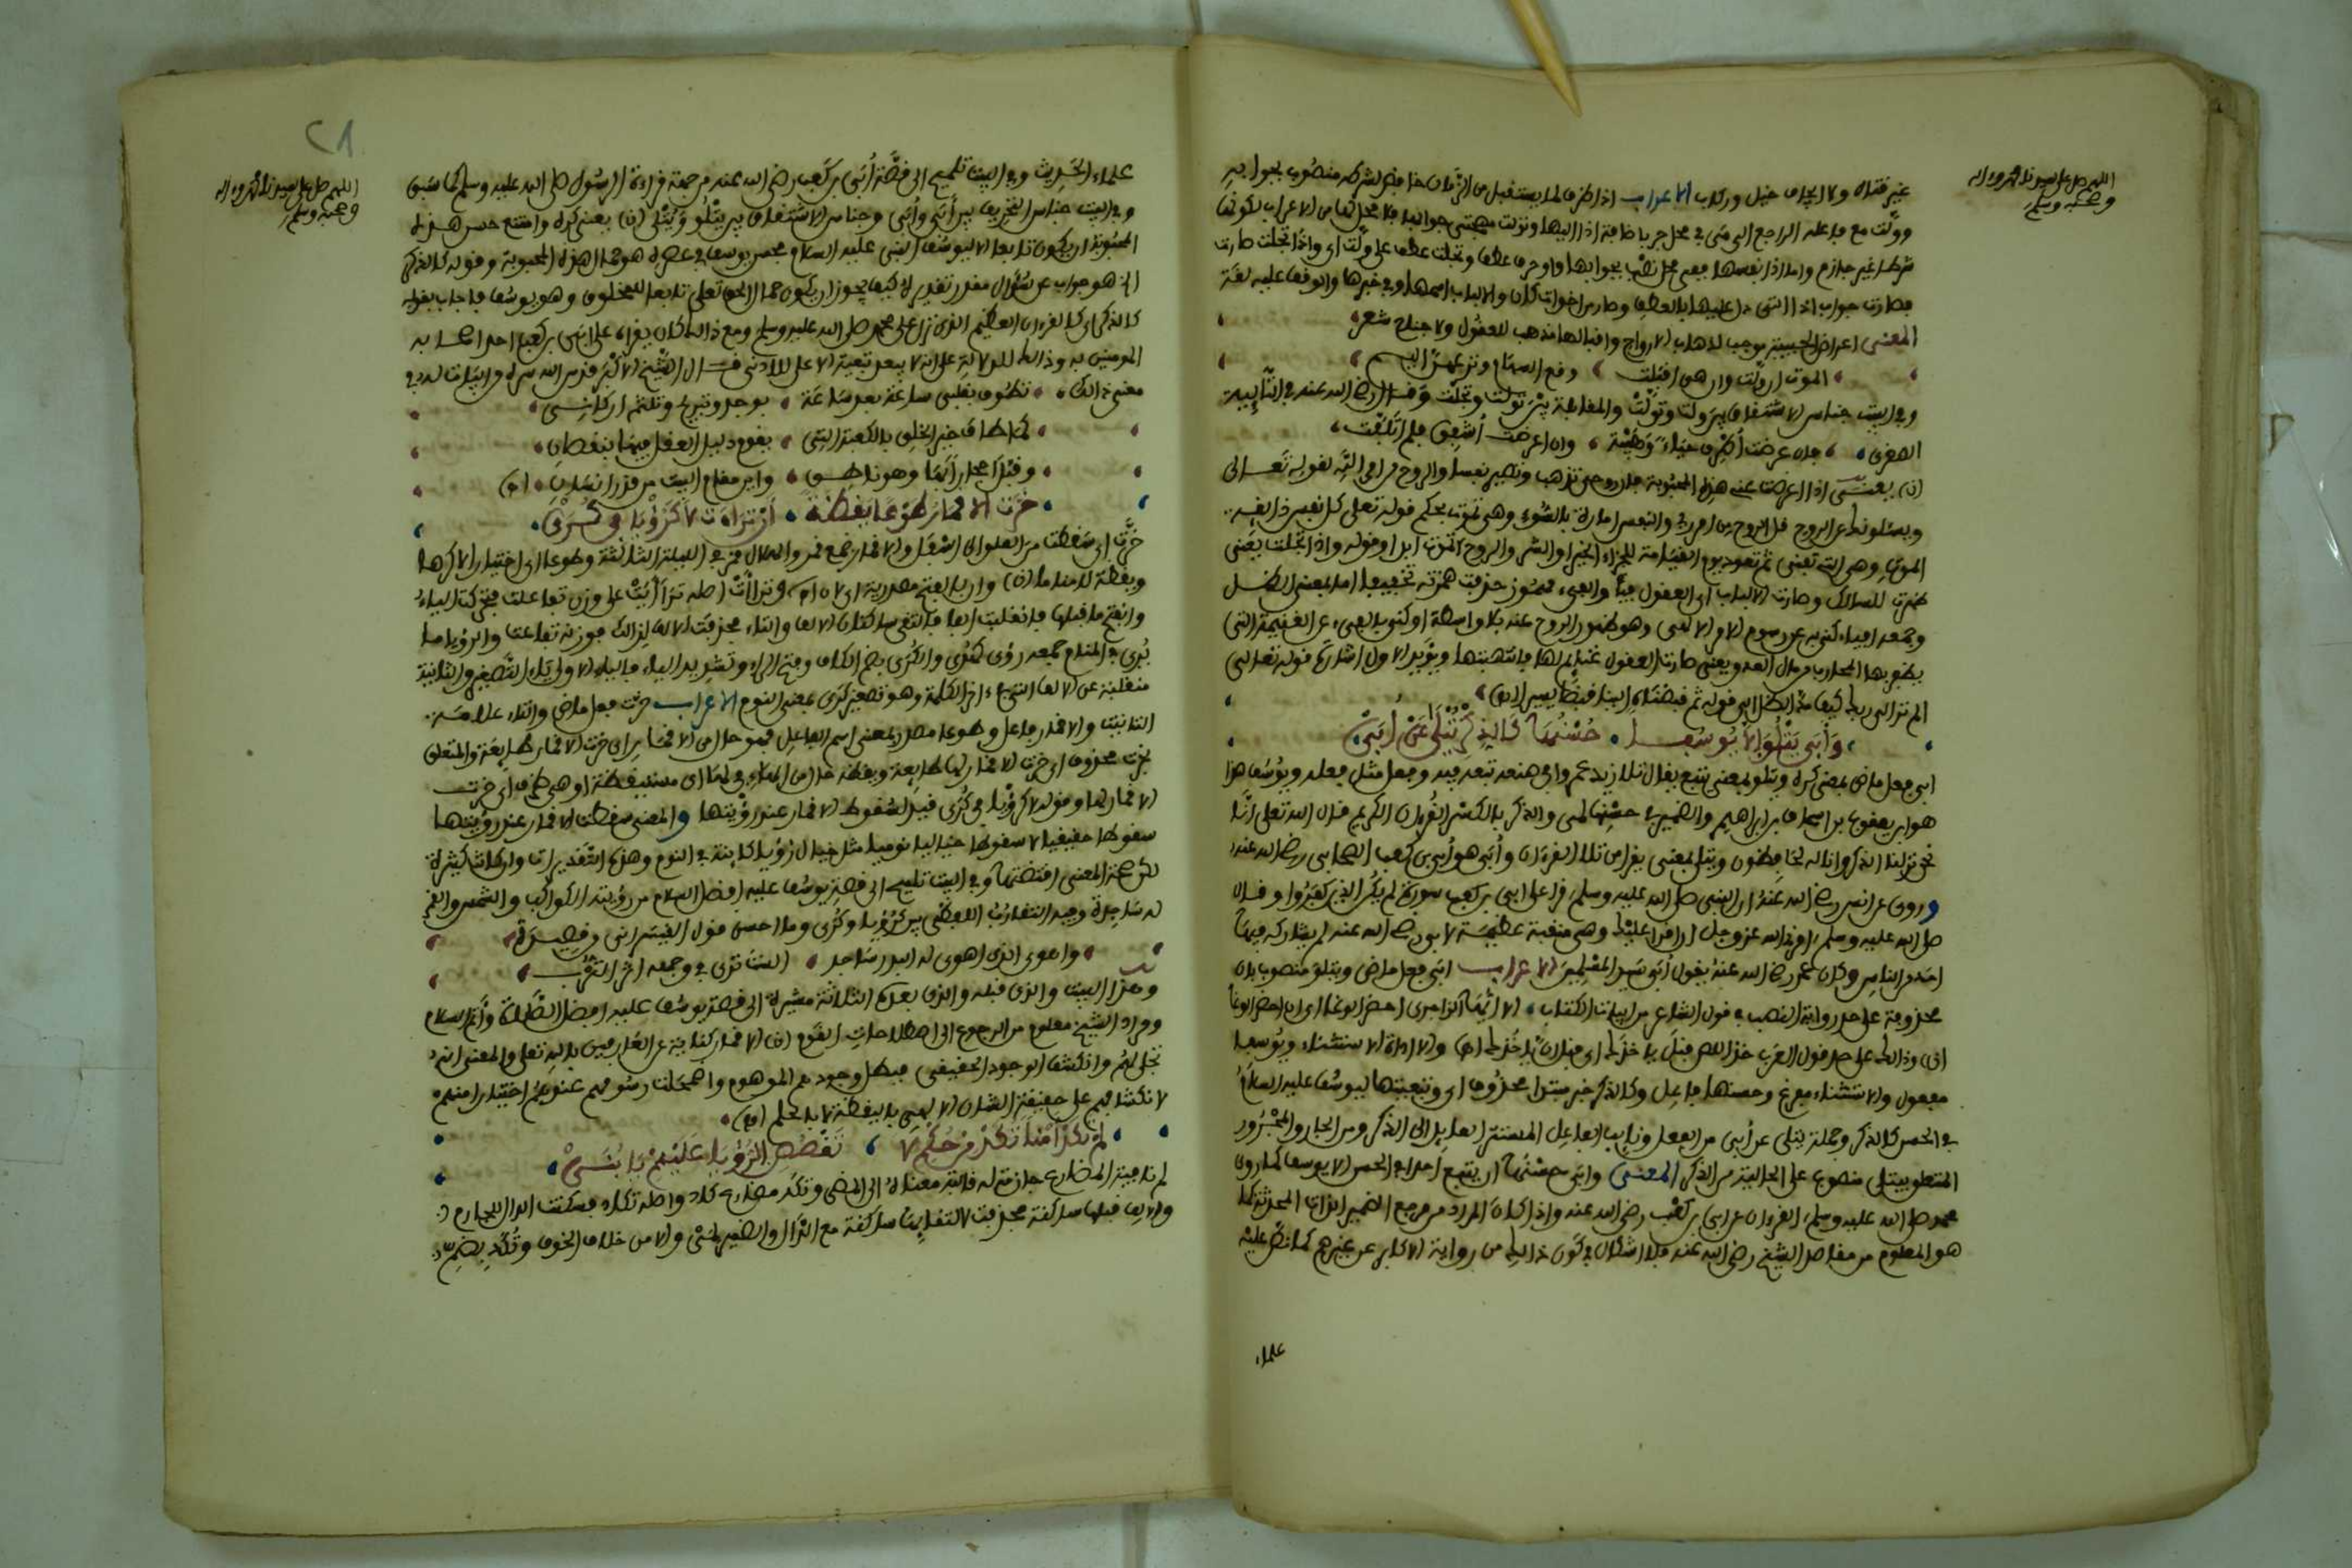 اللهم صل على سيدنا محمد وءاله
وصحبه وسلم
غير فتاة ولا ايجاف خيل وركاب الاعراب اذا ظرف لما يستقبل من الزمان خافض لشرطه منصوب بجوابه
وولت مع فاعله الراجع الى في محل جر باضافة اذا اليها وتولت مهجتي جوابها فلا محل لها من الاعراب لكونها
شرطا غير جازم واذا نفسها ففي محل نصب بجوابها واو حرف عطف وتجلت عطف على ولت اي واذا تجلت صارت
فصارت جواب اذا التي دل عليها بالعطف وصار من اخوات كان والالباب اسمها وفي خبرها والوقف عليه لغة
المعنى اعراض الحبيبة موجب لذهاب الارواح واقبالها مذهب للعقول ولا جناح شعر
الموت ان ولت وان هي اقبلت وقع السهام ونزعهن اليم
وفي البيت جناس الاشتقاق بين ولت وتولت والمقابلة بين تولت وتجلت وقال رضي الله عنه في التائية
الصغرى فان عرضت أطرق حياء وهيبة وان اعرضت أشفق فلم اتلفت
(ن) يعني اذا اعرضت عني هذه المحبوبة فان روحي تذهب وتصير نفسا والروح من امر الله لقوله تعالى
ويسئلونك عن الروح قل الروح من امر ربي والنفس امارة بالسوء وهي تموت بحكم قوله تعالى كل نفس ذائقة
الموت وهي التي تفنى ثم تعود يوم القيامة للجزاء الخير او الشر والروح لا تموت ابدا وقوله واذا تجلت يعني
ظهرت للسالك وصارت الالباب اي العقول فيا والفيء مهموز حذفت همزته تخفيفا اما بمعنى الظل
وجمعه افياء كني به عن رسوم الاولى وهو ظهور الروح عنه بلا واسطة او كني بالفيء عن الغنيمة التي
يظفر بها المحارب من مال العدو يعني صارت العقول غنائم لها فانتهبتها ويؤيد الاول اشارة قوله تعالى
الم تر الى ربك كيف مد الظل الى قوله ثم قبضناه الينا قبضا يسيرا (ن)
وأبى يتلو الا يوسفا حسنها كالذكر يتلى عن أبي
ابى فعل ماض بمعنى كره ويتلو بمعنى يتبع يقال تلا زيد عمرا في صنعه تبعه فيه وفعل مثل فعله ويوسف هذا
هو ابن يعقوب بن اسحاق بن ابراهيم والضمير في حسنها لمي والذكر بالكسر القرءان الكريم قال الله تعالى انا
نحن نزلنا الذكر وانا له لحافظون ويتلى بمعنى يقرا من تلا القرءان وأبي هو أبي بن كعب الصحابي رضي الله عنه
وروى عن انس رضي الله عنه ان النبي صلى الله عليه وسلم قرا على ابي بن كعب سورة لم يكن الذين كفروا وقال
صلى الله عليه وسلم امرني الله عز وجل ان اقرا عليك وهي منقبة عظيمة لابي رضي الله عنه لم يشاركه فيها
احد من الناس وكان عمر رضي الله عنه يقول أبي سيد المسلمين الاعراب ابى فعل ماض ويتلو منصوب بان
محذوفة على حد رواية النصب في قول الشاعر من ابيات الكتاب الا ايهذا الزاجري احضر الوغا اي ان احضر الوغا
(ن) وذالك على حد قول العرب خذ اللص قبل ياخذك اي قبل ان ياخذك (ه) والا اداة الاستثناء ويوسفا
مفعول والاستثناء مفرغ وحسنها فاعل وكالذكر خبر مبتدا محذوف اي وتبعيتها ليوسف عليه السلام
في الحسن كالذكر وجملة يتلى عن أبي من الفعل ونائب الفاعل المستتر العايد الى الذكر ومن الجار والمجرور
المتعلق بيتلى منصوب على الحالية من الذكر المعنى وابى حسنها ان يتبع احدا في الحسن الا يوسف كما روى
محمد صلى الله عليه وسلم القرءان عن ابي بن كعب رضي الله عنه واذا كان المراد من مرجع الضمير الذات المحمدية كما
هو المعلوم من مقاصد الشيخ رضي الله عنه فلا اشكال في كون ذالك من رواية الاكابر عن غيرهم كما نص عليه
علماء
٢٨
اللهم صل على سيدنا محمد وءاله
وصحبه وسلم
علماء الحديث وفي البيت تلميح الى قصة أبي بن كعب رضي الله عنه من جهة قراءة الرسول صلى الله عليه وسلم كما سبق
وفي البيت جناس التحريف بين أبى وأبي وجناس الاشتقاق بين يتلو ويتلى (ن) يعني كره وامتنع حسن هذه
المحبوبة ان يكون تابعا الا ليوسف النبي عليه السلام فحسن يوسف في عصره هو جمال هذه المحبوبة وقوله كالذكر
الخ هو جواب عن سؤال مقدر تقديره كيف يجوز ان يكون جمال الحق تعالى تابعا للمخلوق وهو يوسف فاجاب بقوله
كالذكر اي كالقرءان العظيم الذي نزل على محمد صلى الله عليه وسلم ومع ذالك كان يقراه على ابي بن كعب احد اصحابه
المومنين به وذالك للدلالة على انه لا يبعد تبعية الاعلى للادنى قال الشيخ الاكبر قدس الله سره من ابيات له في
معنى ذالك تطوف بقلبي ساعة بعد ساعة بوجد وتبريح وتلثم اركاني
كما طاف خير الخلق بالكعبة التي يقول دليل العقل فيها بنقصان
وقبل احجارا بها وهو ناطق واين مقام البيت من قدر انسان (ه)
خرت الاقمار طوعا يقظة أن تراءت لا كرؤيا في كرى
خرت اي سقطت من العلو الى اسفل والاقمار جمع قمر والهلال قمر في الليلة الثالثة وطوعا اي اختيارا لا كرها
ويقظة لا مناما (ن) وان بالفتح مصدرية اي لان (ه) وتراءت اصله تراأيت على وزن تفاعلت تحركت الياء
وانفتح ما قبلها فانقلبت الفا فالتقى ساكنان الالف والتاء فحذفت الالف لذالك فوزنه تفاعت والرؤيا ما
يرى في المنام جمعه رؤى كهدى والكرى بضم الكاف وفتح الراء وتشديد الياء فالياء الاولى ياء التصغير والثانية
منقلبة عن الالف التي في ءاخر الكلمة وهو تصغير كرى بمعنى النوم الاعراب خرت فعل ماض والتاء علامة
التانيث والاقمار فاعل وطوعا مصدر بمعنى اسم الفاعل فهو حال من الاقمار اي خرت الاقمار طايعة والمتعلق
بخرت محذوف اي خرت الاقمار لها طايعة ويقظة حال من الهاء في لها اي مستيقظة او هي ظرف اي خرت
الاقمار لها وقوله لا كرؤيا في كرى قيد لسقوط الاقمار عند رؤيتها والمعنى سقطت الاقمار عند رؤيتها
سقوطا حقيقيا لا سقوطا خياليا نوميا مثل خيال رؤيا كاينة في النوم وهذه التقديرات وان كانت كثيرة
لكن صحة المعنى اقتضتها وفي البيت تلميح الى قصة يوسف عليه افضل السلام من رؤيته الكواكب والشمس والقمر
له ساجدة وفيه التقارب اللفظي بين كرؤيا وكرى وما احسن قول القيسراني
واهوى الذي اهوى له البدر ساجدا الست ترى في وجهه اثر الترب
وهذا البيت والذي قبله والذي بعده الثلاثة مشيرة الى قصة يوسف عليه افضل الصلاة وأتم السلام
ومراد الشيخ معلوم من الرجوع الى اصطلاحات القوم (ن) الاقمار كناية عن العارفين بالله تعالى والمعنى انه
تجلى لهم وانكشف الوجود الحقيقي فبطل وجودهم الموهوم واضمحلت رسومهم عندهم اختيارا منهم
لانكشافهم على حقيقة الشان الالهي باليقظة لا بالحلم (ه)
لم تكد أمنا تكد من حكم لا تقصص الرؤيا عليهم يا بني
لم نافية المضارع جازمة له قالبة معناه الى المضي وتكد مضارع كاد واصله تكاد فسكنت الدال للجازم
والالف قبلها ساكنة فحذفت لالتقايها ساكنة مع الدال والضمير لمي والامن خلاف الخوف وتكد بضم